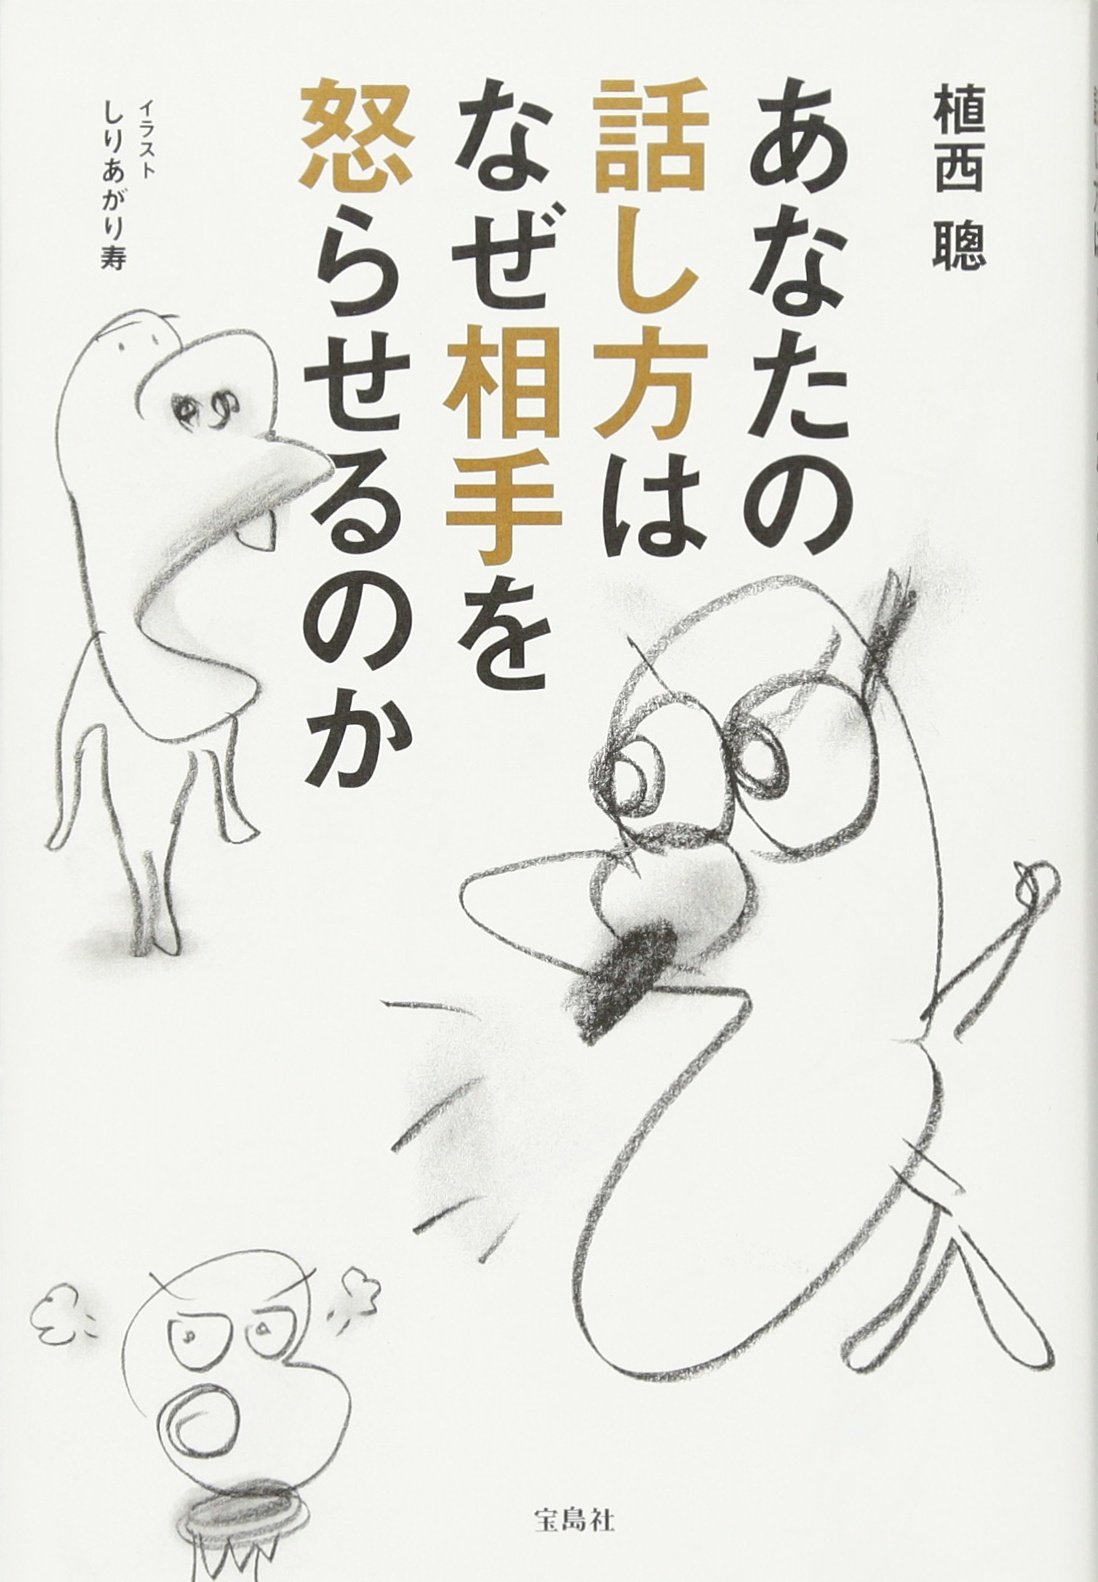 植西 聰
あなたの
話し方は
なぜ相手を
怒らせるのか
イラスト
しりあがり寿
宝島社